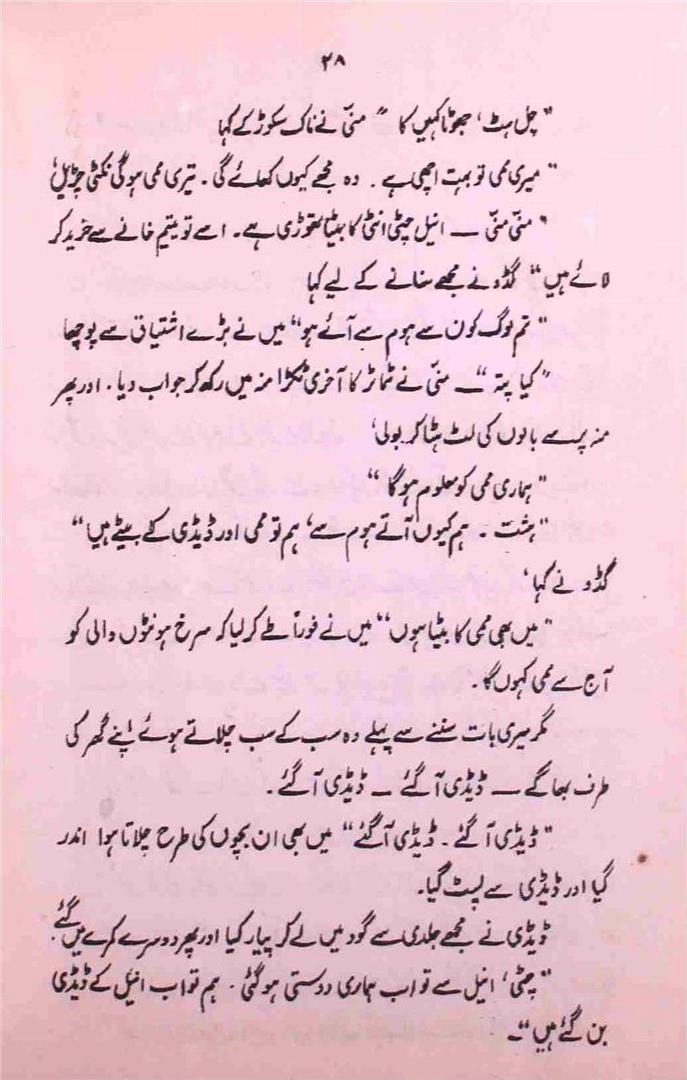 ۲۸
"چل ہٹ، جھوٹا کہیں کا" منیّ نے ناک سکوڑ کے کہا
"میری ممی تو بہت اچھی ہے۔ وہ مجھے کیوں کھائے گی۔ تیری ممی ہوگی نکٹی چڑیل"
"منیّ منیّ — انیل چھٹی انٹی کا بیٹا تھوڑی ہے۔ اسے تو یتیم خانے سے خرید کر
لائے ہیں" گڈو نے مجھے سنانے کے لیے کہا
"تم لوگ کون سے ہوم سے آئے ہو" میں نے بڑے اشتیاق سے پوچھا
"کیا پتہ" — منیّ نے ٹماٹر کا آخری ٹکڑا منہ میں رکھ کر جواب دیا۔ اور پھر
منہ پر سے بالوں کی لٹ ہٹا کر بولی،
"ہماری ممی کو معلوم ہوگا"
"ہشت۔ ہم کیوں آتے ہوم سے، ہم تو ممی اور ڈیڈی کے بیٹے ہیں"
گڈو نے کہا،
"میں بھی ممی کا بیٹا ہوں" میں نے فوراً طے کر لیا کہ سرخ ہونٹوں والی کو
آج سے ممی کہوں گا۔
مگر میری بات سننے سے پہلے وہ سب کے سب چلاتے ہوئے اپنے گھر کی
طرف بھاگے — ڈیڈی آ گئے — ڈیڈی آ گئے۔
"ڈیڈی آ گئے۔ ڈیڈی آ گئے" میں بھی ان بچوں کی طرح چلاتا ہوا اندر
گیا اور ڈیڈی سے لپٹ گیا۔
ڈیڈی نے مجھے جلدی سے گود میں لے کر پیار کیا اور پھر دوسرے کمرے میں گئے۔
"چھٹی، انیل سے تو اب ہماری دوستی ہو گئی۔ ہم تو اب انیل کے ڈیڈی
بن گئے ہیں"۔